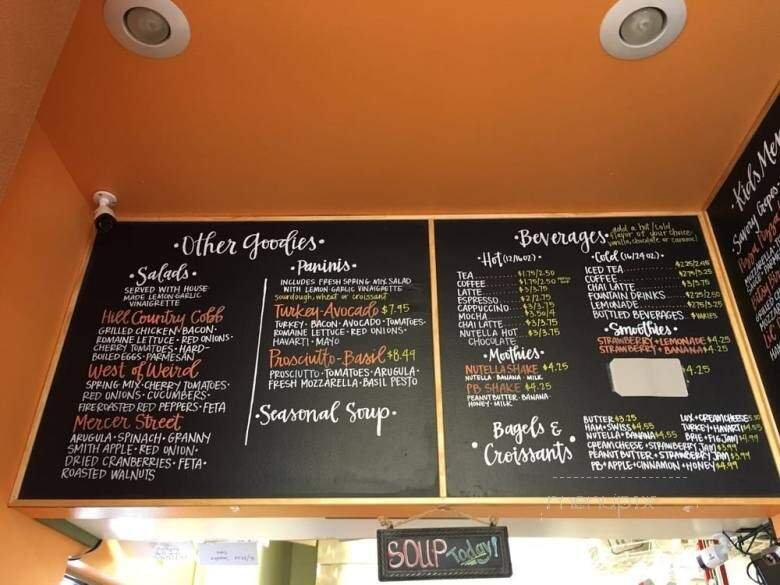 ·Other Goodies·
·Salads·
SERVED WITH HOUSE
MADE LEMON GARLIC
VINAIGRETTE
Hill Country Cobb
GRILLED CHICKEN·BACON·
ROMAINE LETTUCE·RED ONIONS·
CHERRY TOMATOES·HARD-
BOILED EGGS·PARMESAN
West of Weird
SPRING MIX·CHERRY TOMATOES·
RED ONIONS·CUCUMBERS·
FIRE ROASTED RED PEPPERS·FETA
Mercer Street
ARUGULA·SPINACH·GRANNY
SMITH APPLE·RED ONION·
DRIED CRANBERRIES·FETA·
ROASTED WALNUTS
·Paninis·
INCLUDES FRESH SPRING MIX SALAD
WITH LEMON GARLIC VINAIGRETTE
sourdough, wheat or croissant
Turkey-Avocado $7.95
TURKEY·BACON·AVOCADO·TOMATOES·
ROMAINE LETTUCE·RED ONIONS·
HAVARTI·MAYO
Prosciutto-Basil $8.49
PROSCIUTTO·TOMATOES·ARUGULA·
FRESH MOZZARELLA·BASIL PESTO
·Seasonal Soup·
·Beverages·
add a hot/cold
flavor of your choice
vanilla, chocolate or caramel
·Hot (12/16oz)·
TEA $1.75/2.50
COFFEE $1.75/2.50
LATTE $3/3.75
ESPRESSO $2/2.75
CAPPUCCINO $3/3.75
MOCHA $3.50/4
CHAI LATTE $3/3.75
NUTELLA HOT $3/3.75
CHOCOLATE
·Moothies·
NUTELLA SHAKE $4.25
NUTELLA·BANANA·MILK
PB SHAKE $4.25
PEANUT BUTTER·BANANA·
HONEY·MILK
·Cold (16/24oz)·
ICED TEA $2.25/2.95
COFFEE $2.75/3.25
CHAI LATTE $3/3.75
FOUNTAIN DRINKS $2.25/2.50
LEMONADE $2.75/3.25
BOTTLED BEVERAGES $VARIES
·Smoothies·
STRAWBERRY·LEMONADE $4.25
STRAWBERRY·BANANA $4.25
4.25
·Bagels &
Croissants·
BUTTER $3.25
HAM+SWISS $4.55
NUTELLA+BANANA $4.55
CREAM CHEESE+STRAWBERRY JAM $3.99
PEANUT BUTTER+STRAWBERRY JAM $3.99
PB+APPLE+CINNAMON+HONEY $4.49
LOX+CREAM CHEESE
TURKEY+HAVARTI
BRIE+FIG JAM $4.99
·Kids Menu
Savory Crepes
SOUP Today!
menupix